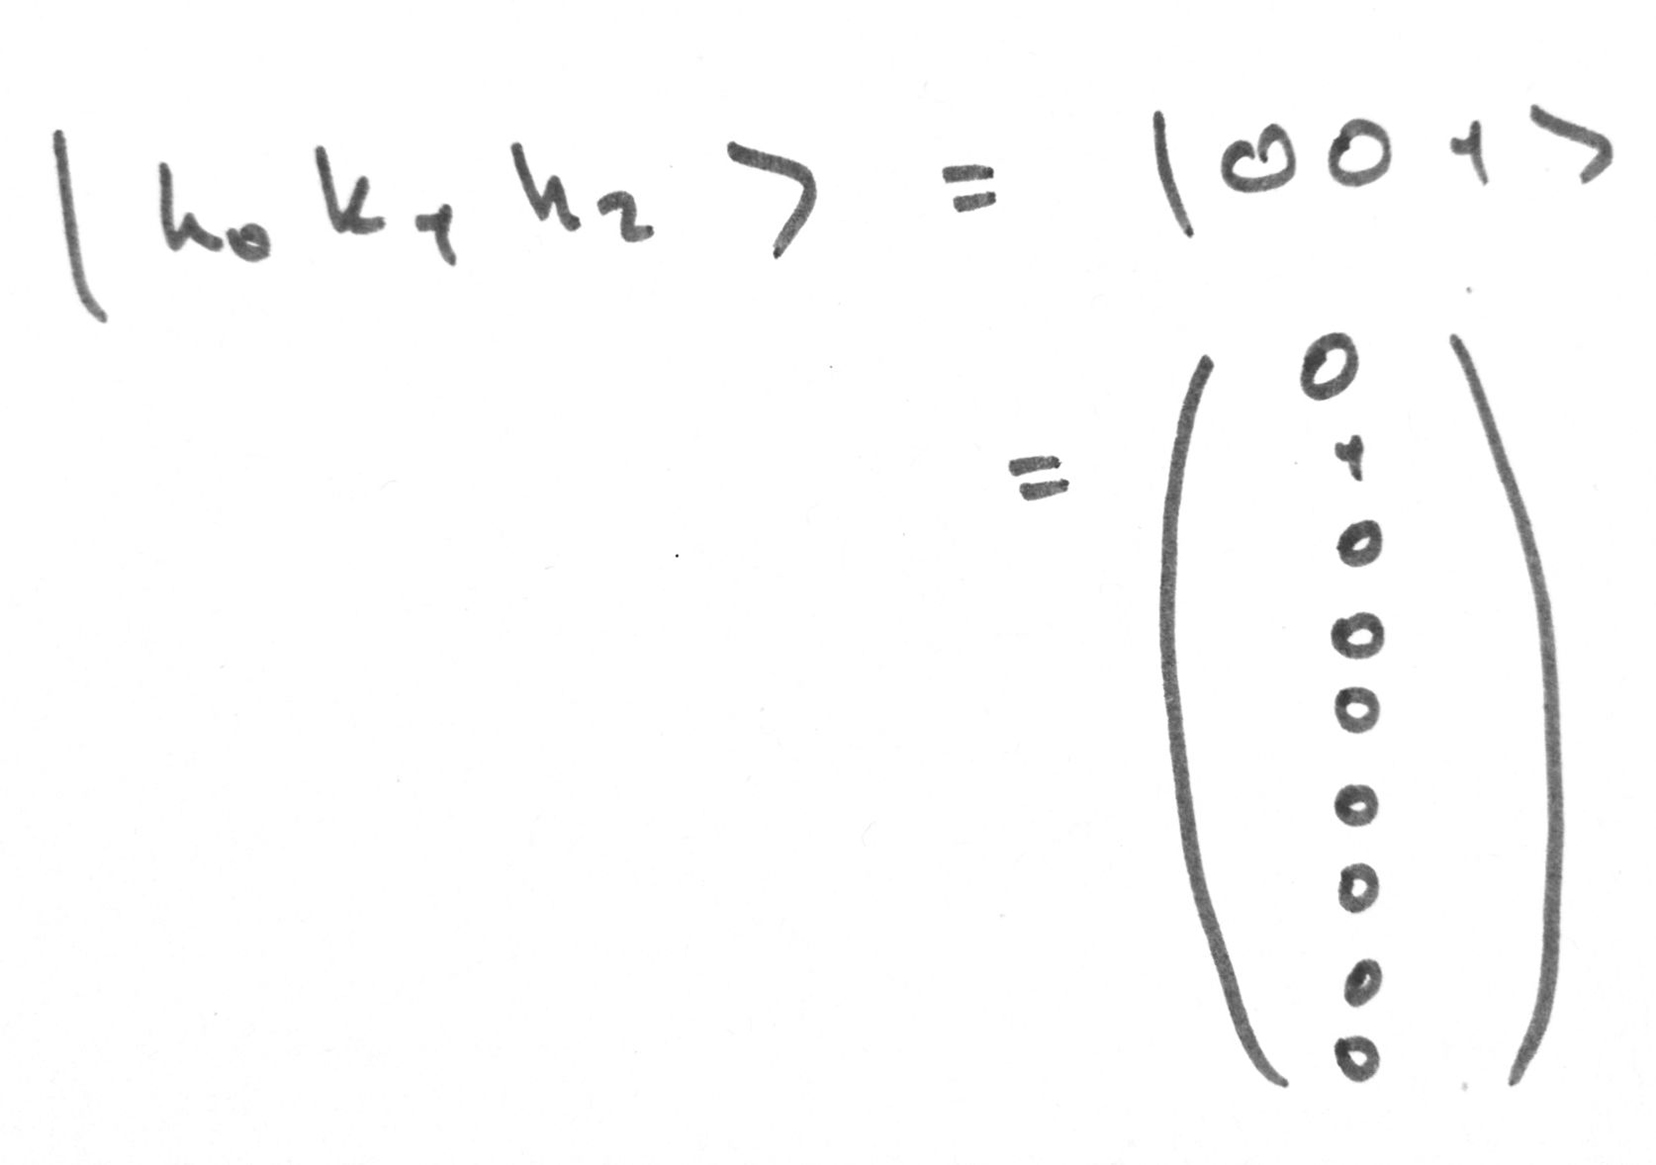 |k₀ k₁ k₂⟩ = |001⟩
= (
0
1
0
0
0
0
0
0
0
)